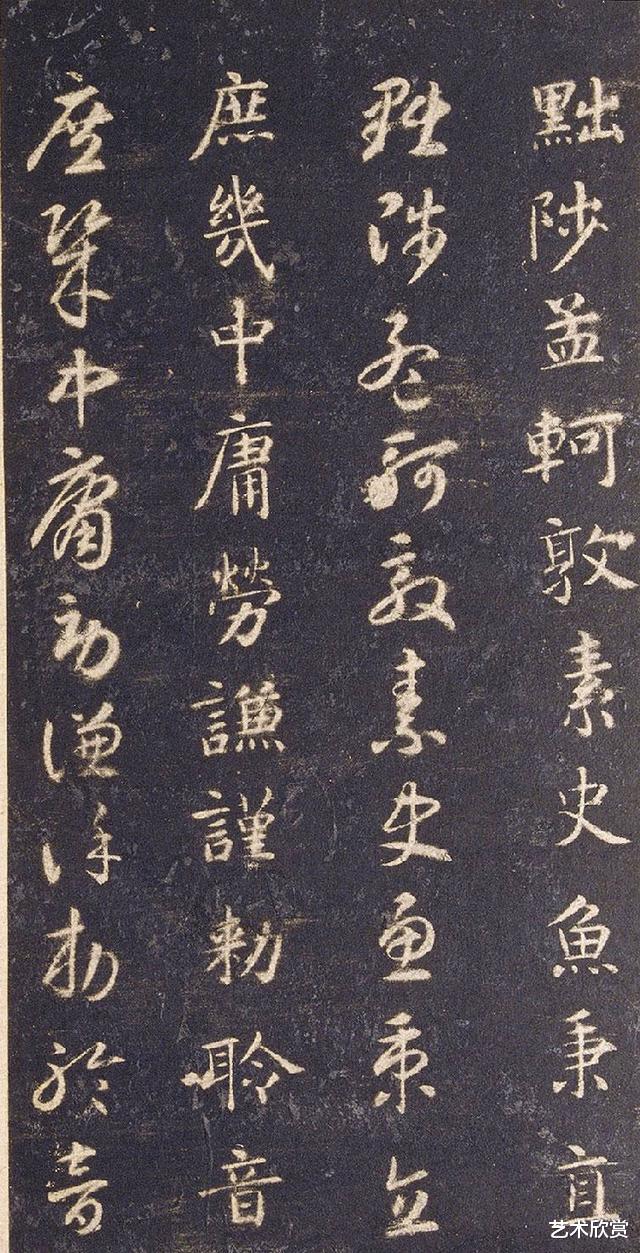 黜陟孟軻敦素史魚秉直
黜陟孟軻敦素史魚秉直
庶幾中庸勞謙謹勅聆音
庶幾中庸勞謙謹勅聆音
艺术欣赏